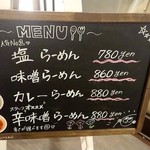 MENU
人気No.1
塩らーめん 780yen
味噌らーめん 860yen
カレーらーめん 880yen
スタッフ
辛味噌らーめん 880yen